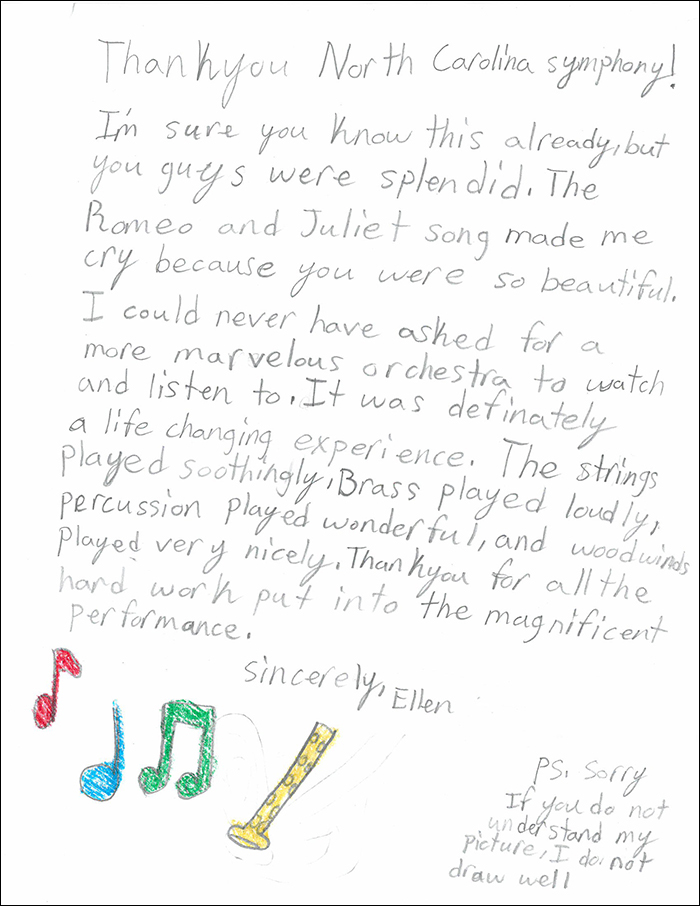 Thankyou North Carolina symphony!
I'm sure you know this already, but
you guys were splendid. The
Romeo and Juliet song made me
cry because you were so beautiful.
I could never have asked for a
more marvelous orchestra to watch
and listen to. It was definately
a life changing experience. The strings
played soothingly, Brass played loudly,
percussion played wonderful, and woodwinds
played very nicely. Thankyou for all the
hard work put into the magnificent
performance.
sincerely, Ellen
PS. Sorry
If you do not
understand my
picture, I do not
draw well